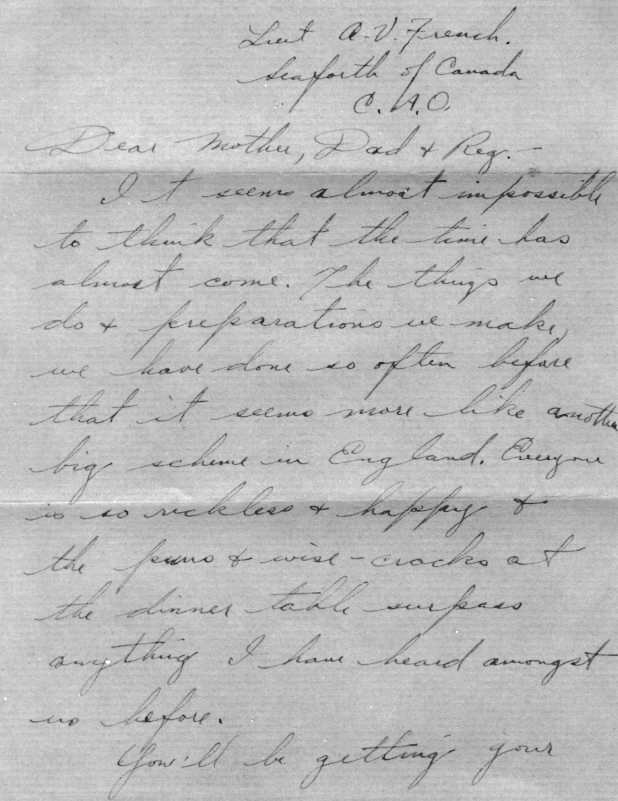 Lieut A.V. French.
Seaforth of Canada
C.A.O.
Dear Mother, Dad & Reg. -
It seems almost impossible
to think that the time has
almost come. The things we
do & preparations we make,
we have done so often before
that it seems more like another
big scheme in England. Everyone
is so reckless & happy &
the puns & wise-cracks at
the dinner table surpass
anything I have heard amongst
us before.
You'll be getting your